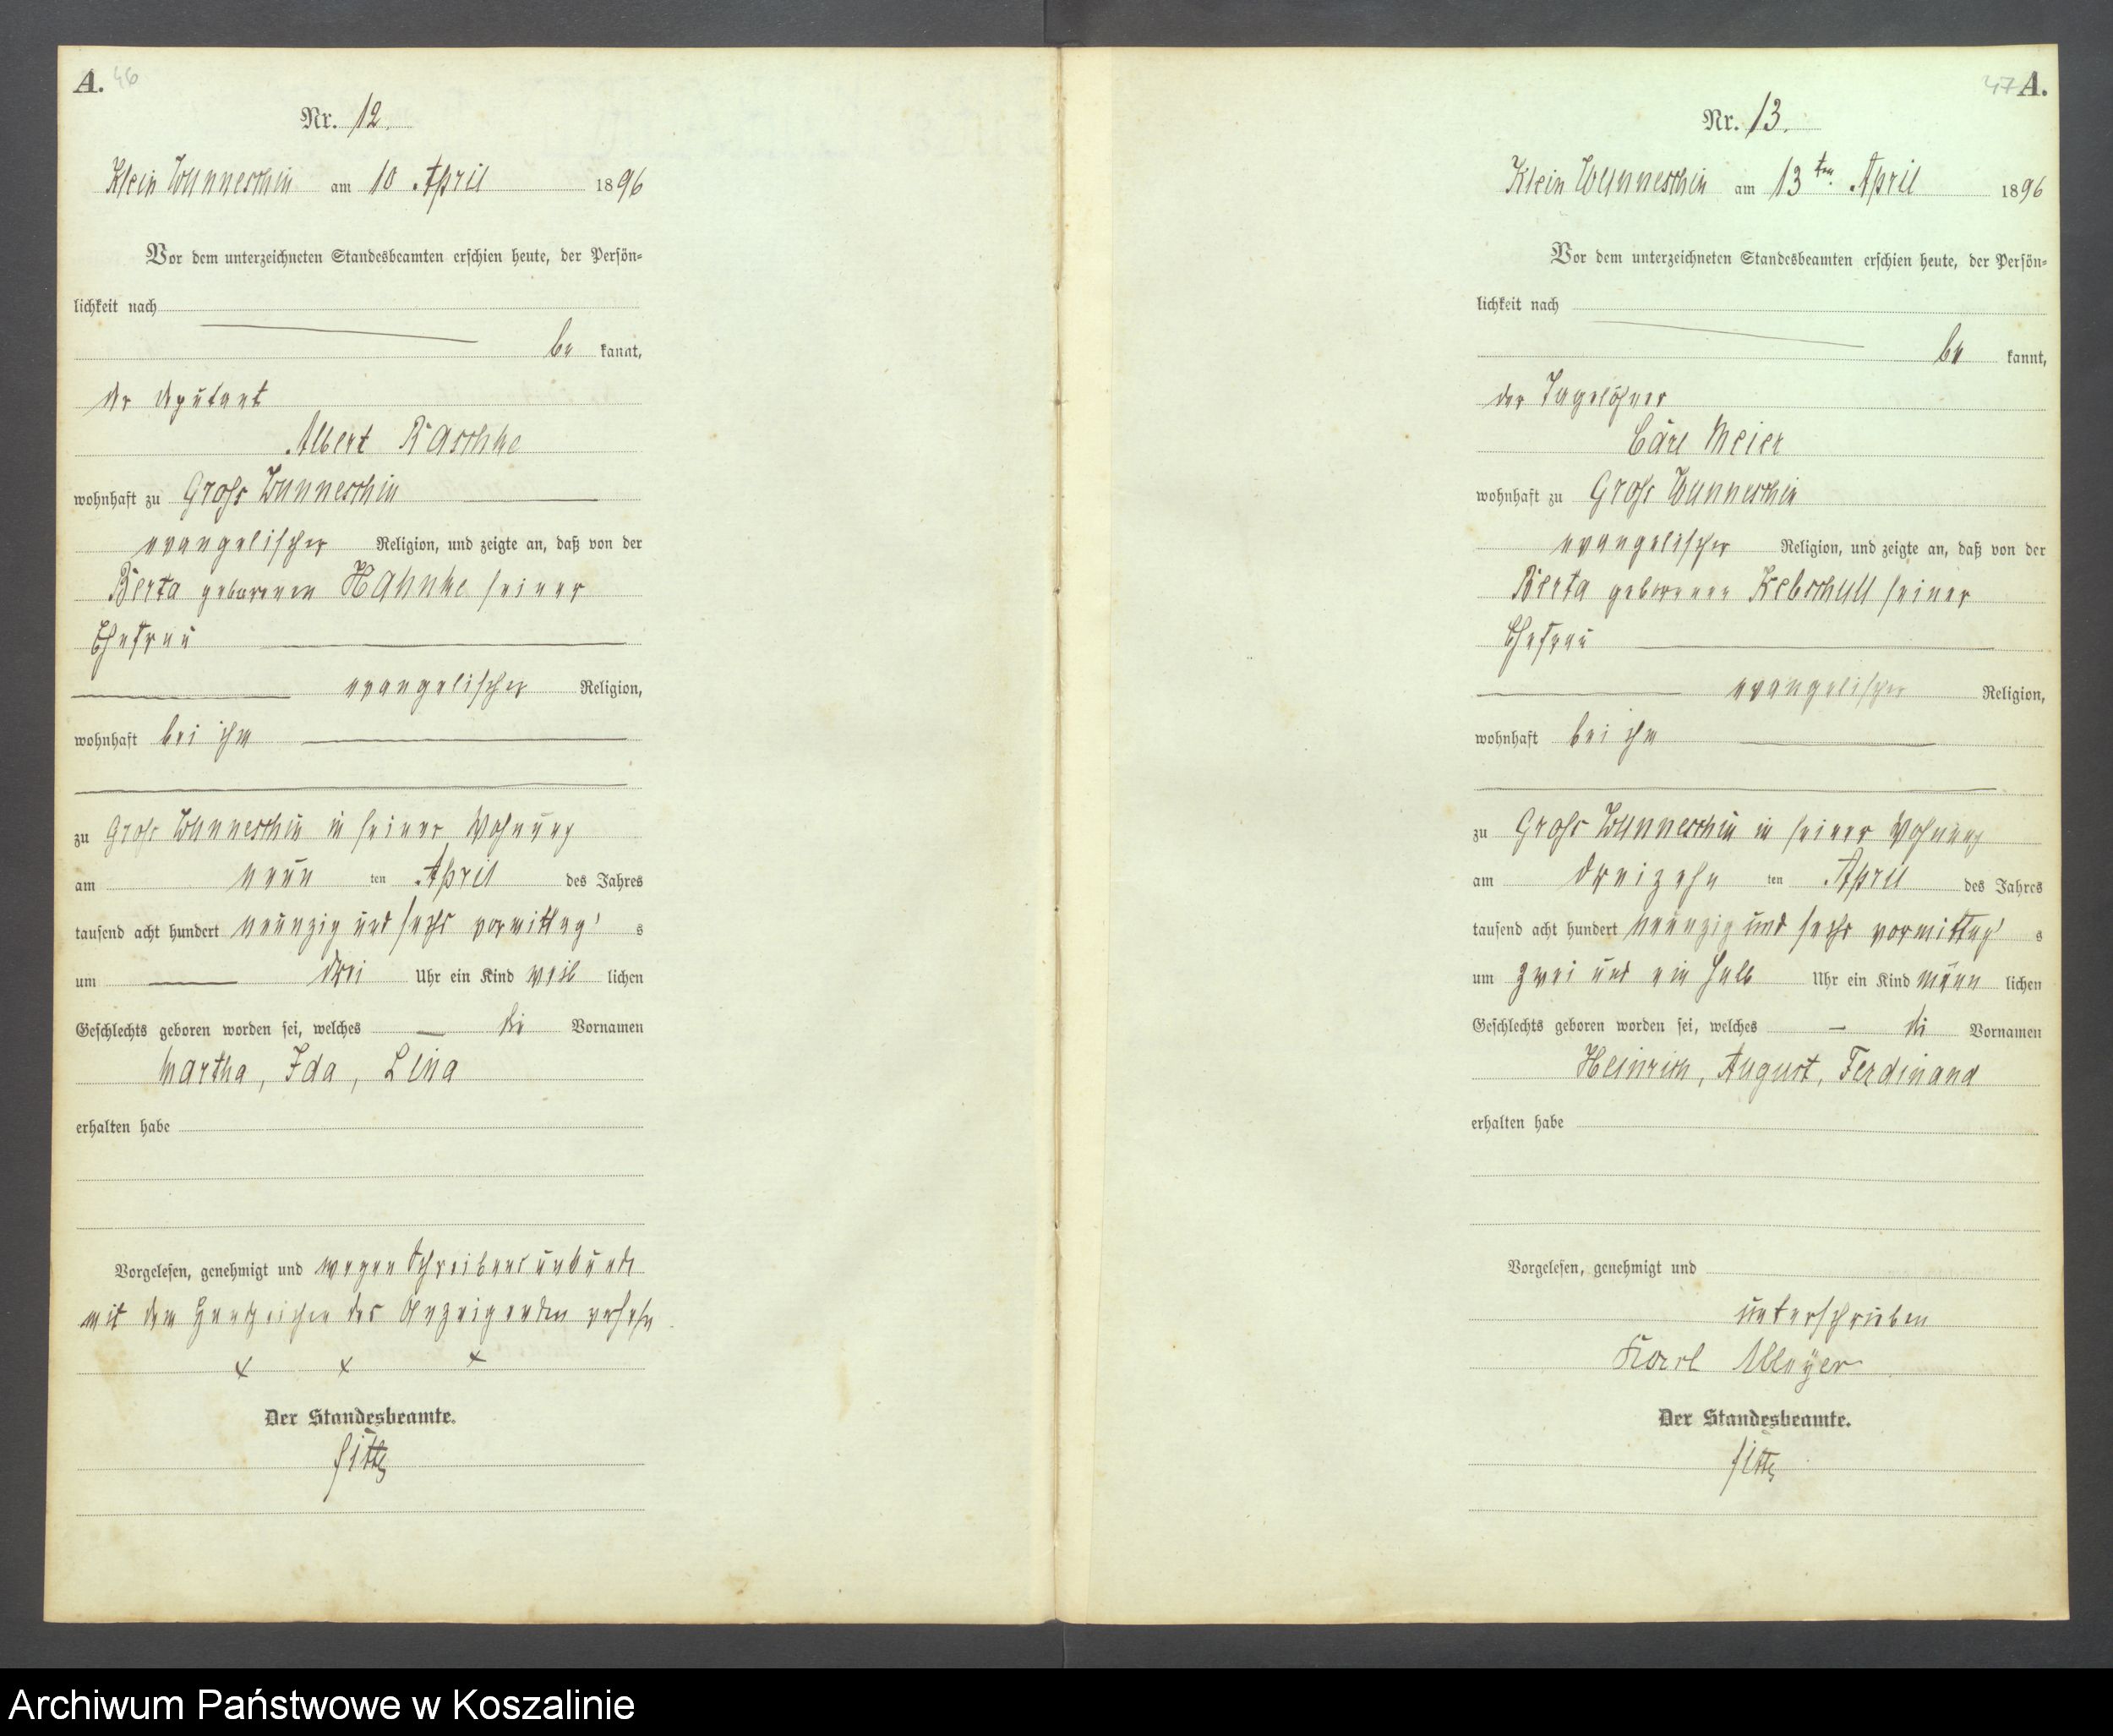 A. 46
Nr. 12.
Klein Wunneschin am 10 April 1896
Vor dem unterzeichneten Standesbeamten erschien heute, der Persön=
lichkeit nach
be kannt,
der Deputant
Albert Raschke
wohnhaft zu Groß Wunneschin
evangelischer Religion, und zeigte an, daß von der
Berta geborenen Hahnke seiner
Ehefrau
evangelischer Religion,
wohnhaft bei ihm
zu Groß Wunneschin in seiner Wohnung
am neun ten April des Jahres
tausend acht hundert neunzig und sechs vormittag s
um drei Uhr ein Kind weib lichen
Geschlechts geboren worden sei, welches die Vornamen
Martha, Ida, Lina
erhalten habe
Vorgelesen, genehmigt und wegen Schreibensunkunde
mit dem Handzeichen des Anzeigenden versehn
x x x
Der Standesbeamte.
47 A.
Nr. 13.
Klein Wunneschin am 13ten April 1896
Vor dem unterzeichneten Standesbeamten erschien heute, der Persön=
lichkeit nach
be kannt,
der Tagelöhner
Carl Meier
wohnhaft zu Groß Wunneschin
evangelischer Religion, und zeigte an, daß von der
Berta geborenen Kebschull seiner
Ehefrau
evangelischer Religion,
wohnhaft bei ihm
zu Groß Wunneschin in seiner Wohnung
am dreizehn ten April des Jahres
tausend acht hundert neunzig und sechs vormittag s
um zwei und ein halb Uhr ein Kind männ lichen
Geschlechts geboren worden sei, welches die Vornamen
Heinrich, August, Ferdinand
erhalten habe
Vorgelesen, genehmigt und
unterschrieben
Karl Meyer
Der Standesbeamte.
Archiwum Państwowe w Koszalinie